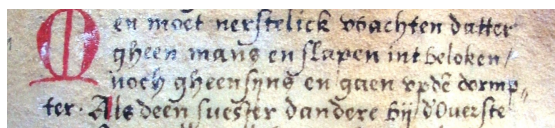 Men moet nerstelick wachten datter
gheen mans en slapen int beloken/
noch gheen sijns en gaen vpdē dormp„
ter. Als deen suester dandere bij d'Overste